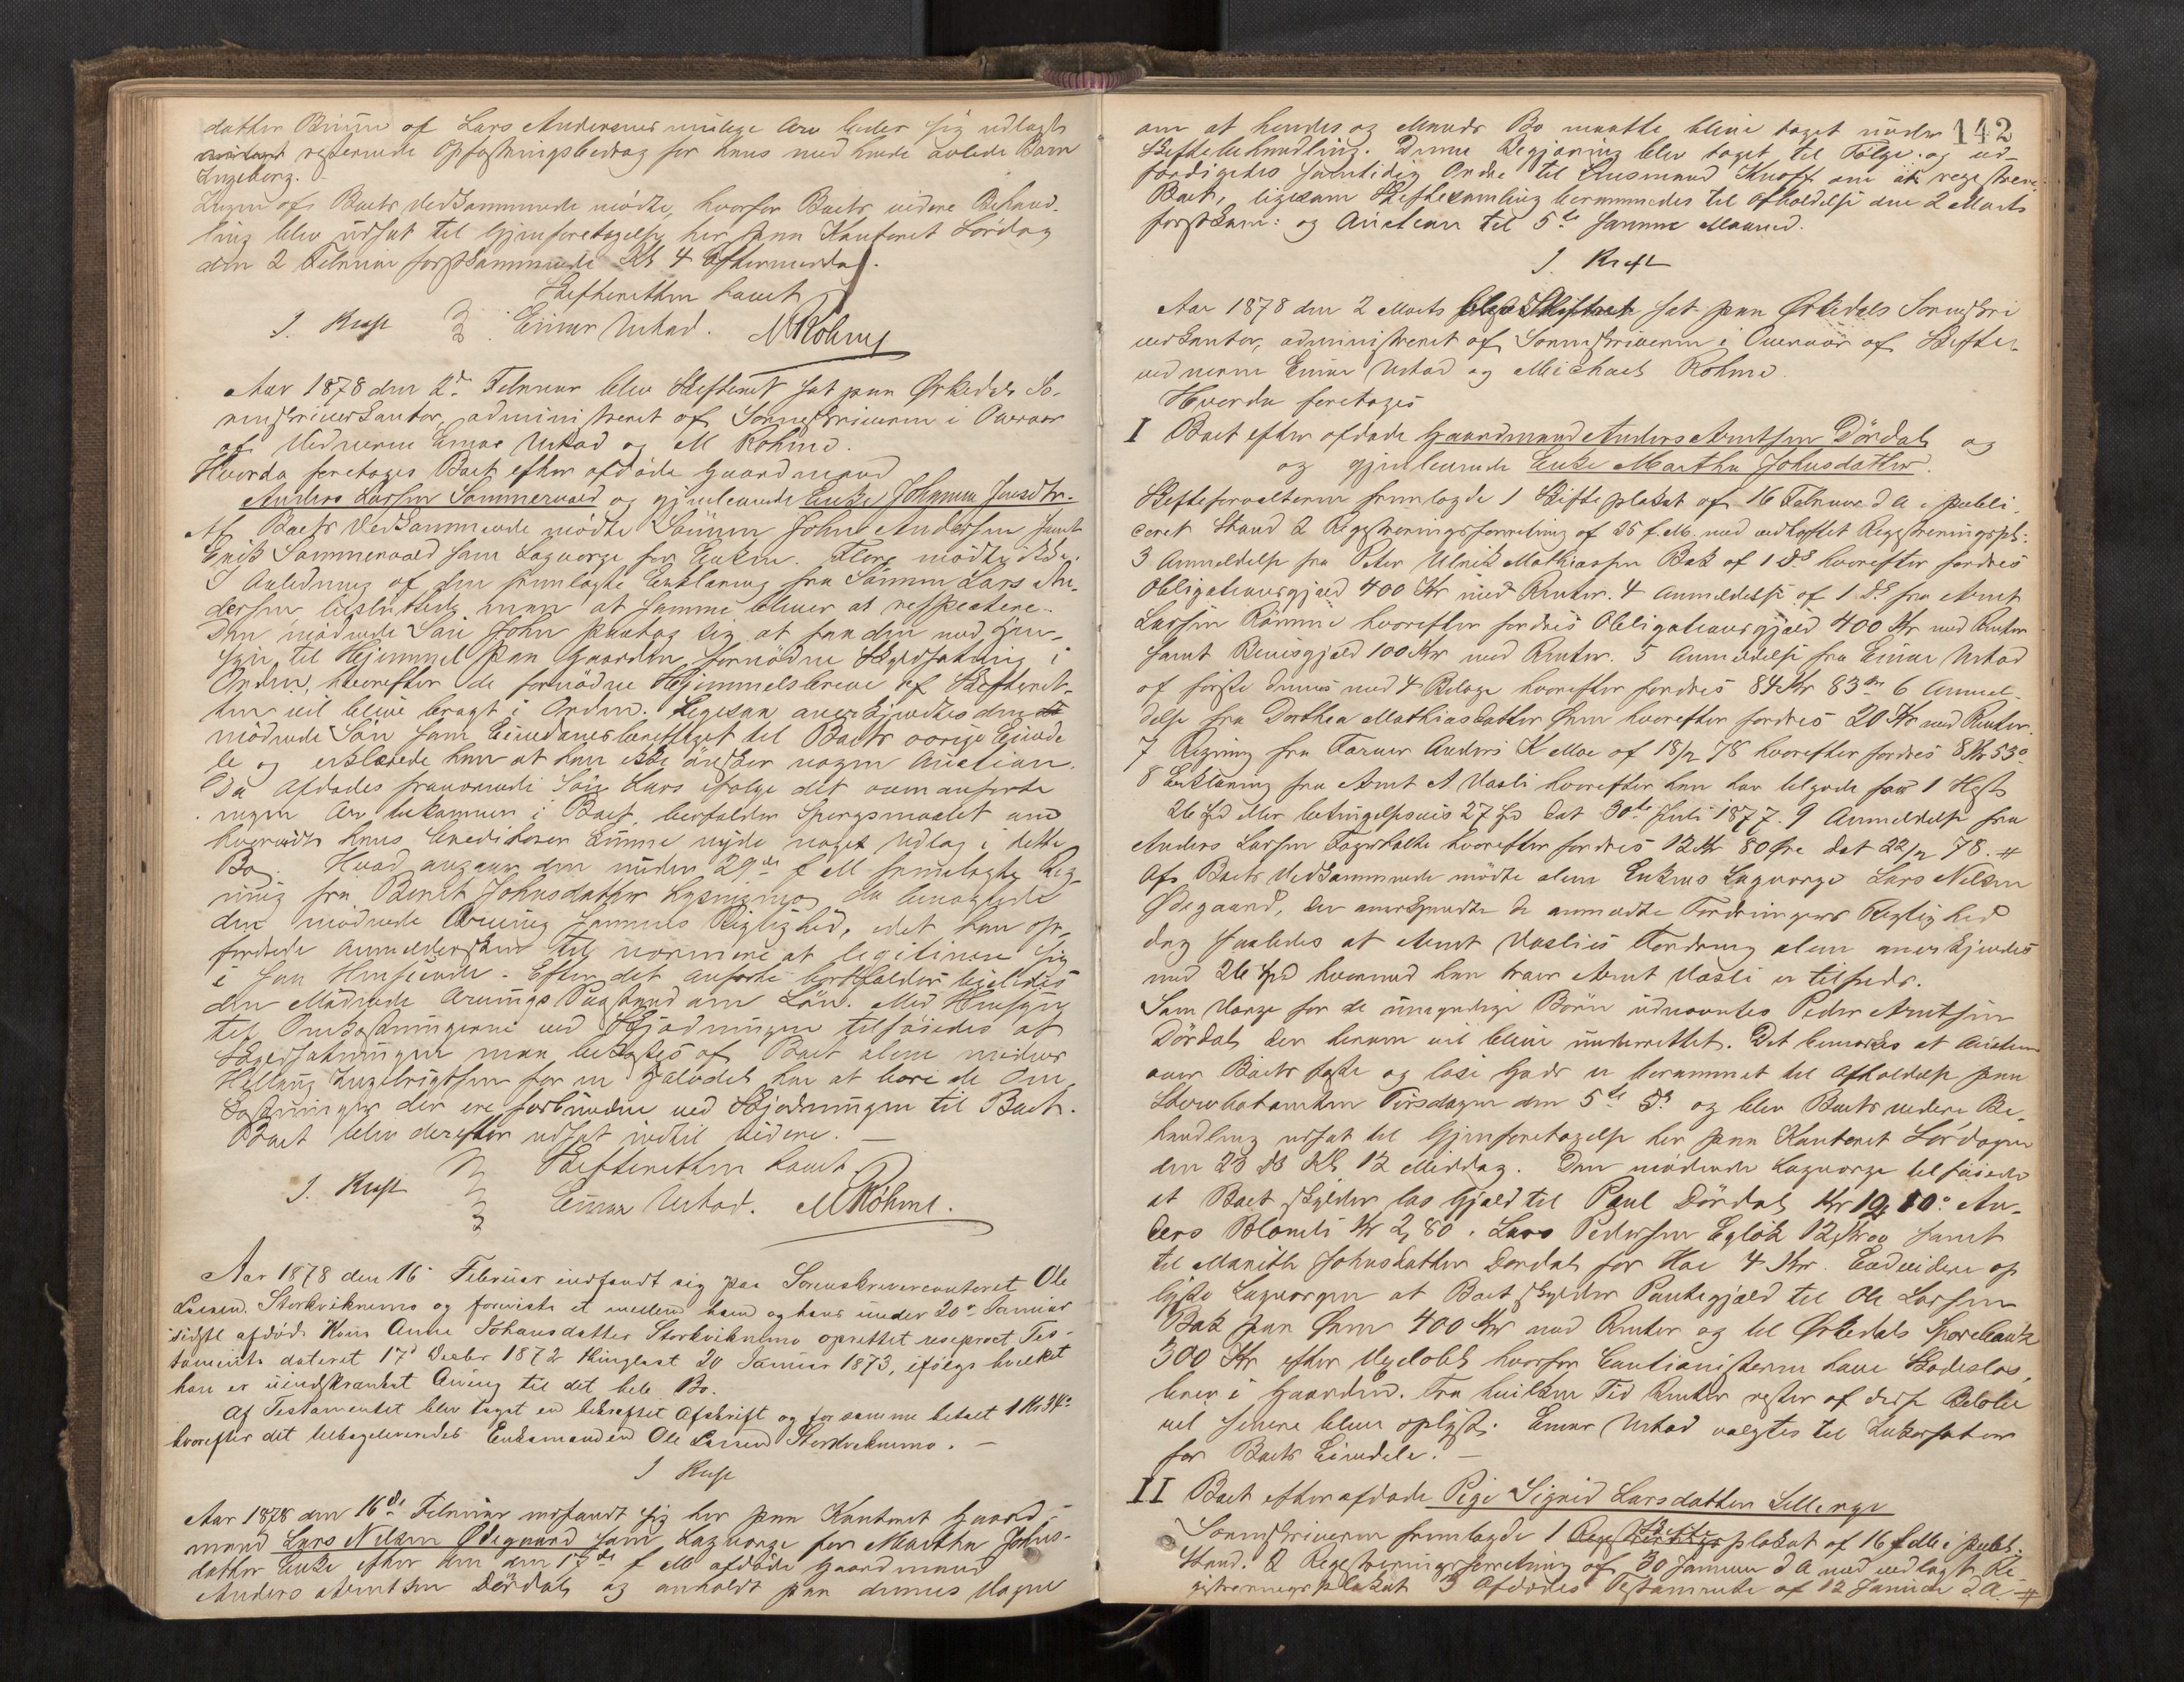 datter Bruun af Lars Andersens mulige Arv lader sig udlagt
resterende Opfostringsbidrag for hans med hende avlede Barn
Ingeborg.
Ingen af Boets Vedkommende mødte, hvorfor Boets videre Behand-
ling blev udsat til Gjenforetagelse her paa Kontoret Lördag
den 2 Februar førstkommende Kl 4 Eftermiddag.
Skifteretten hævet
J. Kreft Einar Urstad. M Röhme
Aar 1878 den 2d Februar blev Skifteret sat paa Ørkedals So-
renskriverkontor, administreret af Sorenskriveren i Overvær
af Vidnerne Einar Urstad og M Rohme.
Hvorda foretoges Boet efter afdøde Gaardmand
Anders Larsen Sommervold og gjenlevende Enke Johanna Jensdtr.
Af Boets Vedkommende mødte Sönnen John Andersen samt
Erik Sommervold som Lagverge for Enken. Flere mødte ikke.
I Anledning af den fremlagte Erklæring fra Sönnen Lars An-
dersen besluttede man at samme bliver at respectere.
Den mödende Sön John paatog sig at faa den med Hen-
syn til Hjemmel paa Gaarden fornödne Skyldsætning i
Orden, hvorefter de fornödne Hjemmelsbreve af Skifteret-
ten vil blive bragt i Orden. Ligesaa anerkjendtes den
mödende Sön som Eiendomsberettiget til Boets övrige Eiende
le og erklærede han at han ikke önsker nogen Auction.
Da Afdödes fraværende Sön Lars ifølge det ovenanførte
ingen Arv tilkommer i Boet, bortfalder Spørgsmaalet om
hvorvidt hans Creditorer kunne nyde noget Udlag i dette
Bo. Hvad angaar den under 29de f M fremlagte Reg-
ning fra Beret Johnsdatter Lysningmo da benægtede
den mödende Arving sammes Rigtighed, idet han op-
fordrede Anmelderskens til nærmere at legitimere sig
i saa Henseende. Efter det anførte bortfalder ligeledes
den Mödende Arvings Paastand om Lön. Med Hensyn
til Omkostningerne ved Skjödningen tilföiedes at
Skyldsætningen maa bekostes af Boet alene medens
 for en halvdel har at bære de Om-
kostninger der ere forbundne ved Skjödningen til Boet.
Boet blev derefter udsat indtil Videre. —
Skifteretten hævet
J. Kreft Einar Urstad. M Röhme.
Aar 1878 den 16 Februar indfandt sig paa Sorenskrivercontoret Ole
Larsen Storkviknemo og foreviste et mellem ham og hans under 20de Januar
sidstl afdöde Kone Anne Johansdatter Storkviknemo oprettet resiproct Tes-
tamente dateret 17d Decbr 1872 thinglæst 20 Januar 1873, ifölge hvilket
han er uindskrænket Arving til det hele Bo.
Af Testamentet blev taget en bekræftet Afskrift og for samme betalt 1 Kr 34 ø
hvorefter det tilbageleveredes Enkemanden Ole Larsen Storkviknemo. —
J Kreft
Aar 1878 den 16de Februar indfandt sig her paa Kontoret Gaard-
mand Lars Nilsen Ødegaard som Lagverge for Martha Johns-
datter Enke efter den den 17de f M afdøde Gaardmand
Anders Arntsen Dördal og anholdt paa dennes Vegne
142
om at hendes og Mands Bo maatte blive taget under
Skiftebehandling. Denne Begjæring blev taget til Fölge og ud-
færdigedes samtidig Ordre til Lensmand Knoff om at registrere
Boet, ligesom Skiftesamling berammedes til Afholdelse den 2 Marts
førstkom: og Auction til 5te samme Maaned.
J. Kreft
Aar 1878 den 2 Marts blev Skifteret sat paa Ørkedals Sorenskri
verkontor, administreret af Sorenskriveren i Overvær af Skifte-
vidnerne Einar Urstad og Michael Rohme.
Hvorda foretoges
I Boet efter afdøde Gaardmand Anders Arntsen Dördal og
og gjenlevende Enke Martha Johnsdatter.
Skifteforvalteren fremlagde 1 Skifteplakat af 16 Februar d A i publi-
ceret Stand 2 Registreringsforretning af 25 f.M. med vedheftet Registreringspl:
3 Anmeldelse fra Peter Ulrik Mathiassen Bak af 1 ds hvorefter fordres
Obligationsgjæld 400 Kr med Renter. 4 Anmeldelse af 1 ds fra Arnt
Larsen Römme hvorefter fordres Obligationsgjæld 400 Kr med Renter
samt Bevisgjæld 100 Kr med Renter. 5 Anmeldelse fra Einar Urstad
af første dennes med 4 Bilage hvorefter fordres 84 Kr 83 ør 6 Anmel-
delse fra Dorthea Mathiasdatter Ønn hvorefter fordres 20 Kr med Renter.
7 Regning fra Farver Anders K Moe af 18/2 78 hvorefter fordres 8 Kr 53 ø
8 Erklæring fra Arnt A Vasli hvorefter han har tilgode for 1 Hest
26 Spd eller betingelsesvis 27 Spd dat 30te Juli 1877. 9 Anmeldelse fra
Anders Larsen Fagerholt hvorefter fordres 12 Kr 80 Øre dat 22/2 78. #
Af Boets Vedkommende mødte alene Enkens Lagverge Lars Nilsen
Ødegaard, der anerkjendte de anmeldte Fordringers Rigtighed
dog saaledes at Arnt Vaslis Fordring alene anerkjendes
med 26 Spd hvormed han troer Arnt Vasli er tilfreds.
Som Verge for de umyndige Börn udnævntes Peder Arntsen
Dördal der herom vil blive underrettet. Det bemærkes at Auction
over Boets faste og löse Gods er berammet til Afholdelse paa
 Tirsdagen den 5te ds og blev Boets videre Be-
handling udsat til Gjenforetagelse her paa Kontoret Lördagen
den 23 ds Kl 12 Middag. Den mödende Lagverge tilföiede
at Boet skylder lös Gjæld til Paul Dördal Kr 19, 10 ø. An-
ders Blomli Kr 2, 80. Lars Pedersen Eglök 12 Kr 00 samt
til Marith Johnsdatter Dordal for Höe 4 Kr. Endvidere op
lyste Lagvergen at Boet skylder Pantegjæld til Ole Larsen
Bak paa Ønn 400 Kr med Renter og til Ørkedals Sparebank
300 Kr efter Vexelobl hvorfor Cautionisterne have Skadeslös-
brev i Gaarden. Fra hvilken Tid Renter rester af disse Beløb
vil senere blive oplyst. Einar Urstad valgtes til Inkassator
for Boets Eiendele. —
II Boet efter afdøde Pige Sigrid Larsdatter Lilleenge
Sorenskriveren fremlagde 1 Skifteplakat af 16 f M i publ.
Stand. 2 Registreringsforretning af 30 Januar d A med vedlagt Re-
gistreringsplakat 3 Afdødes Testamente af 12 Januar d. A. #